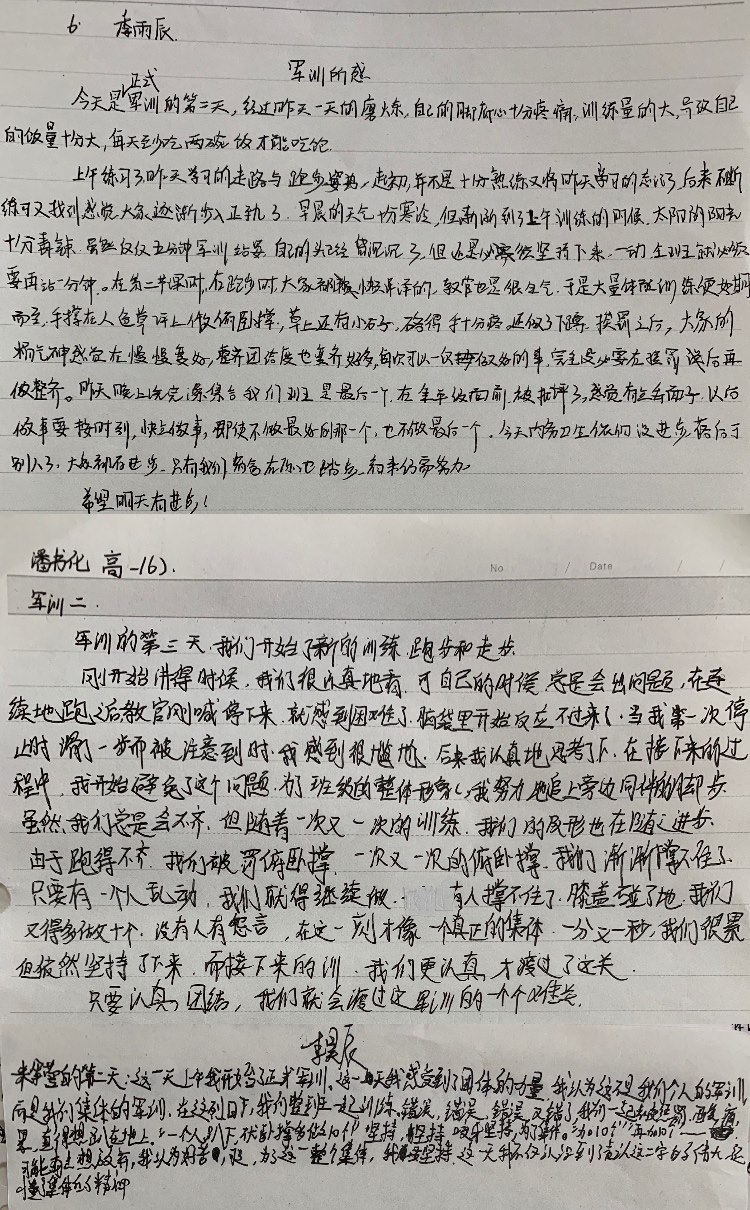 6. 李雨辰
军训所感
今天是正式军训的第二天，经过昨天一天的磨炼，自己的脚底心十分疼痛，训练量的大，导致自己
的饭量十分大，每天至少吃两碗饭才能吃饱
上午练习了昨天学习的走路与跑步姿势，起初，并不是十分熟练又将昨天学习的忘记了后来不断
练习又找到感觉大家逐渐步入正轨了.早晨的天气十分寒冷，但渐渐到了上午训练的时候，太阳的阳光
十分毒辣.虽然仅仅五分钟军训结束自己的头已经昏沉沉了，但还是必须坚持下来.一动全班就必须
要再站一分钟。在第二节课时，在跑步时，大家都被教官也是很生气.于是大量体能训练便如期
而至.手撑在人鱼草坪上做俯卧撑，草上还有小石子，硌得手十分疼.还做了下蹲.挨罚之后，大家的
精气神感觉在慢慢变好，整齐团结度也变齐好多，每次可以一次做好的事，完全没必要在挨罚后再
做整齐。昨天晚上洗完澡集合我们班是最后一个.在全年级面前被批评了，感觉有些丢面子.以后
做事要按时到，快点做事，即使不做最好的那一个，也不做最后一个.今天内务卫生我们没进步落后于
别人了.大家都有进步.只有我们宿舍在原地踏步.后来仍需努力
希望明天有进步！
潘书化 高一(6).
No / Date / /
军训二.
军训的第三天，我们开始了新的训练，跑步和走步.
刚开始讲得时候，我们很认真地看，可自己的时候总是会出问题，在连
续地跑之后教官刚喊停下来，就感到困难了.脑袋里开始反应不过来了.当我第一次停
止时滑了一步而被注意到时，我感到很尴尬.后来我认真地思考了下.在接下来的过
程中，我开始避免了这个问题.为了班级的整体形象，我努力地追上旁边同伴的脚步
虽然，我们总是会不齐.但随着一次又一次的训练.我们的队形也在随之进步.
由于跑得不齐.我们被罚俯卧撑.一次又一次的俯卧撑.我们渐渐撑不住了.
只要有一个人乱动，我们就得继续做. 有人撑不住了.膝盖碰了地.我们
又得多做十个.没有人有怨言，在这一刻才像一个真正的集体.一分又一秒，我们很累
但依然坚持了下来.而接下来的训.我们更认真，才渡过了这关.
只要认真，团结，我们就会渡过这军训的一个个难关.
李昊辰
来军营的第二天：这一天上午我开始了正式军训.这一天我感受到了团体的力量 我认为这不是我们个人的军训
而是我们集体的军训.在这烈日下，我们整班一起训练，错误，错误，错误 又错了我们一起接受惩罚，
累，真的很想趴在地上.一个人趴下，俯卧撑多做10个 坚持，坚持 咬牙坚持，为了集体."加10个""再加10个"
可能再去想放弃，我认为 为了这一整个集体，我坚持.这一天我不仅认识到了认这二字的伟大，还
懂了集体的精神